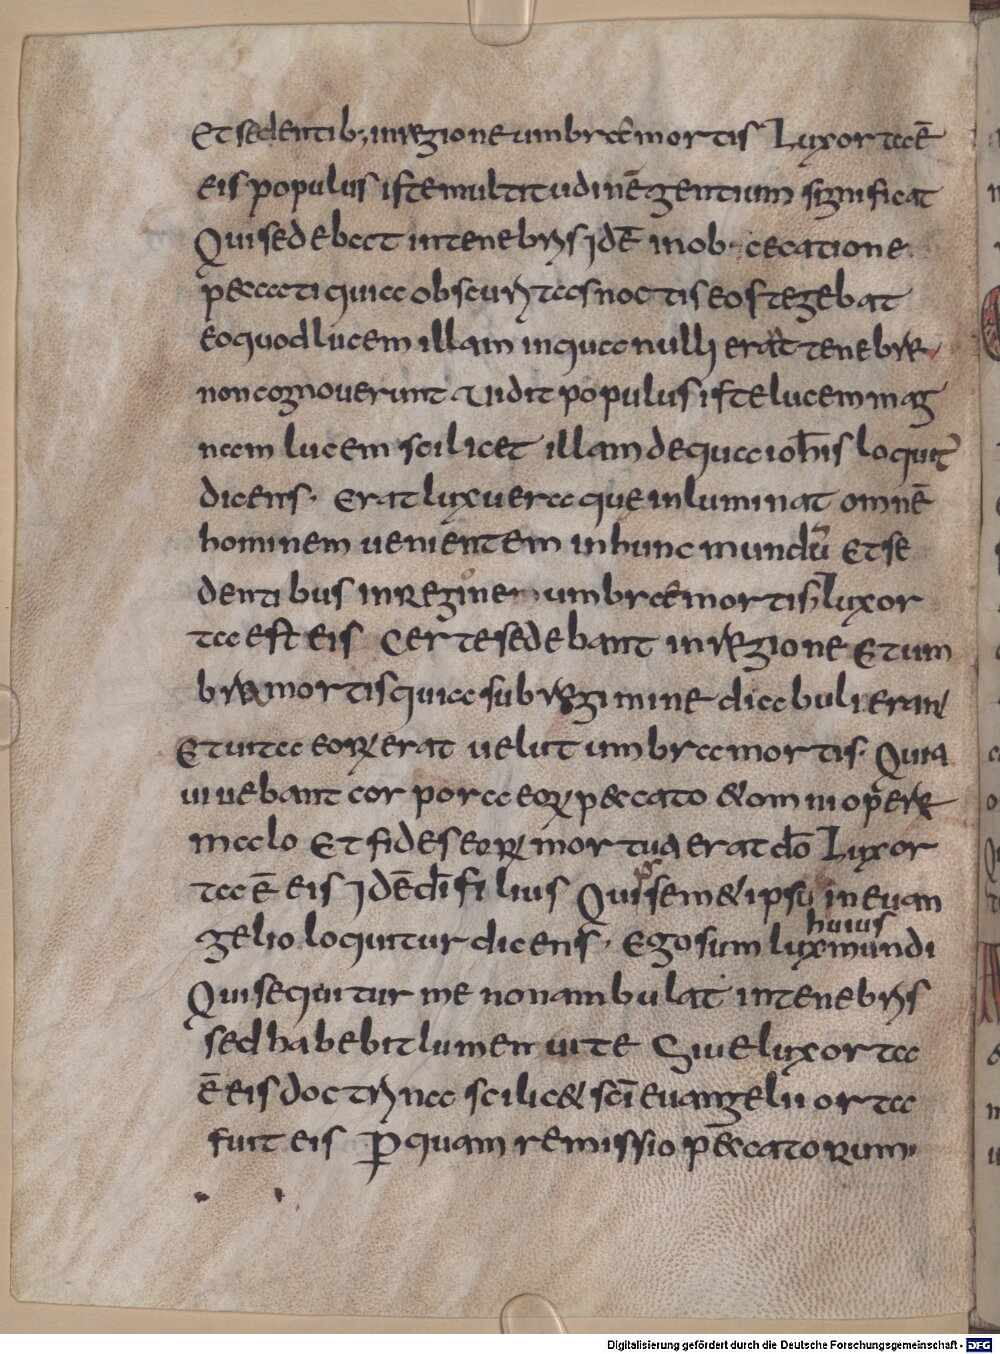 Et sedentib; in regione umbrę mortis Lux orta ē
eis populus iste multitudinē gentium significat
Qui sedebat in tenebris idē in obcecatione
peccati quia obscuritas noctis eos tegebat
eo quod lucem illam in qua nulli erat tenebre
non cognouerunt Uidit populus iste lucem mag
nam lucem scilicet illam de qua ioh̄is loquit̄
dicens· Erat lux uera que inluminat omnē
hominem uenientem in hunc mundū Et se
dentibus in regine umbrę mortis lux or
ta est eis Certe sedebant in regione Et um
bre mortis quia sub regimine diabuli erant
Et uita eoꝝ erat uelut umbra mortis· Quia
uiuebant corpora eoꝝ peccato & omni opere
malo Et fides eoꝝ mortua erat dō Lux or
ta ē eis Idē dī filius Qui semet ipsū in euan
gelio loquitur dicens· Ego sum lux huius mundi
Qui sequitur me non ambulat in tenebris
sed habebit lumen uite Siue lux orta
ē eis doctrina scilic& sc̄i euangelii orta
fuit eis ꝑ quam remissio peccatorum
Digitalisierung gefördert durch die Deutsche Forschungsgemeinschaft - DFG